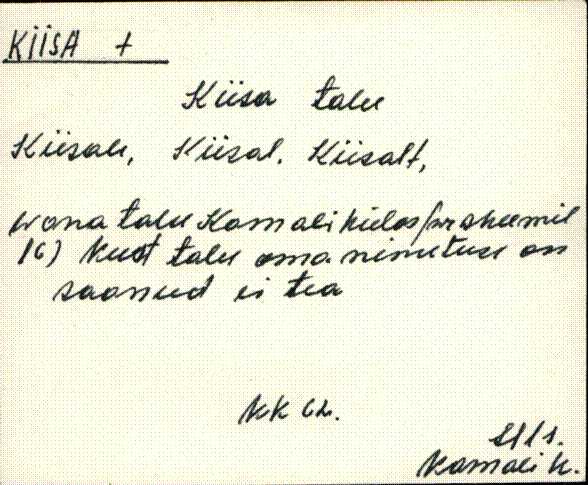 KIISA +
Kiisa talu
Kiisale, Kiisal, Kiisalt,
vana talu Kamali külas (nr skeemil
16) kust talu oma nimetuse on
saanud ei tea
KK 62.
Kamali k.